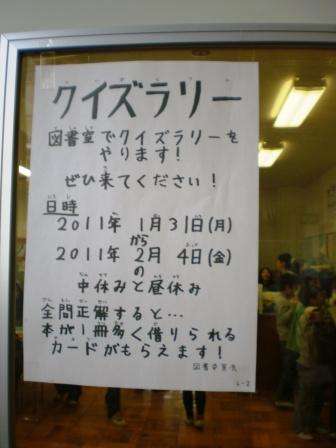 クイズラリー
図書室でクイズラリーを
やります！
ぜひ来てください！
日時
2011年 1月31日(月)
から
2011年 2月 4日(金)
の
中休みと昼休み
全問正解すると…
本が1冊多く借りられる
カードがもらえます！